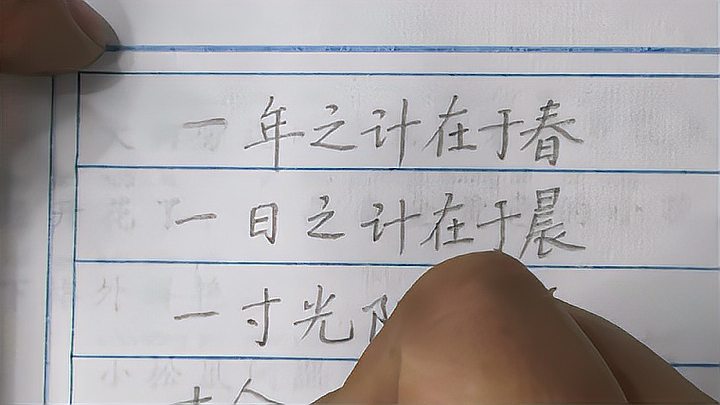 一年之计在于春
一日之计在于晨
一寸光